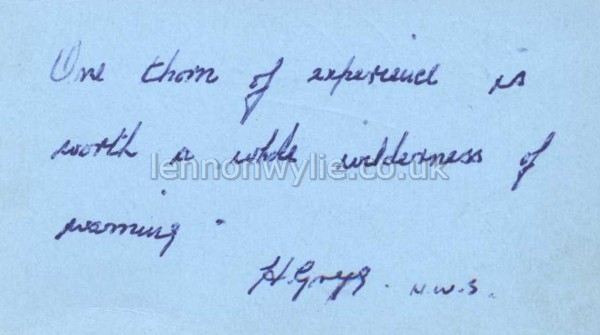 One thorn of experience is
worth a whole wilderness of
lennonwylie.co.uk
warning "
H. Gregg. N.W.S.